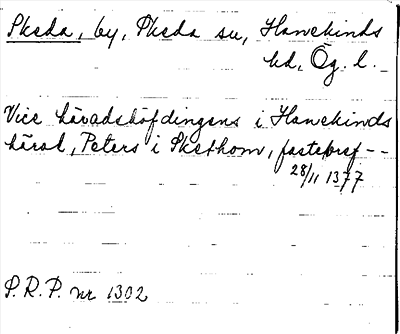 Skeda, by, Skeda sn, Hanekinds
hd, Ög. l.
Vice häradshöfdingens i Hanekinds
härad, Peters i Skethom, fastebref --
28/11 1377
P.R.P. nr 1302